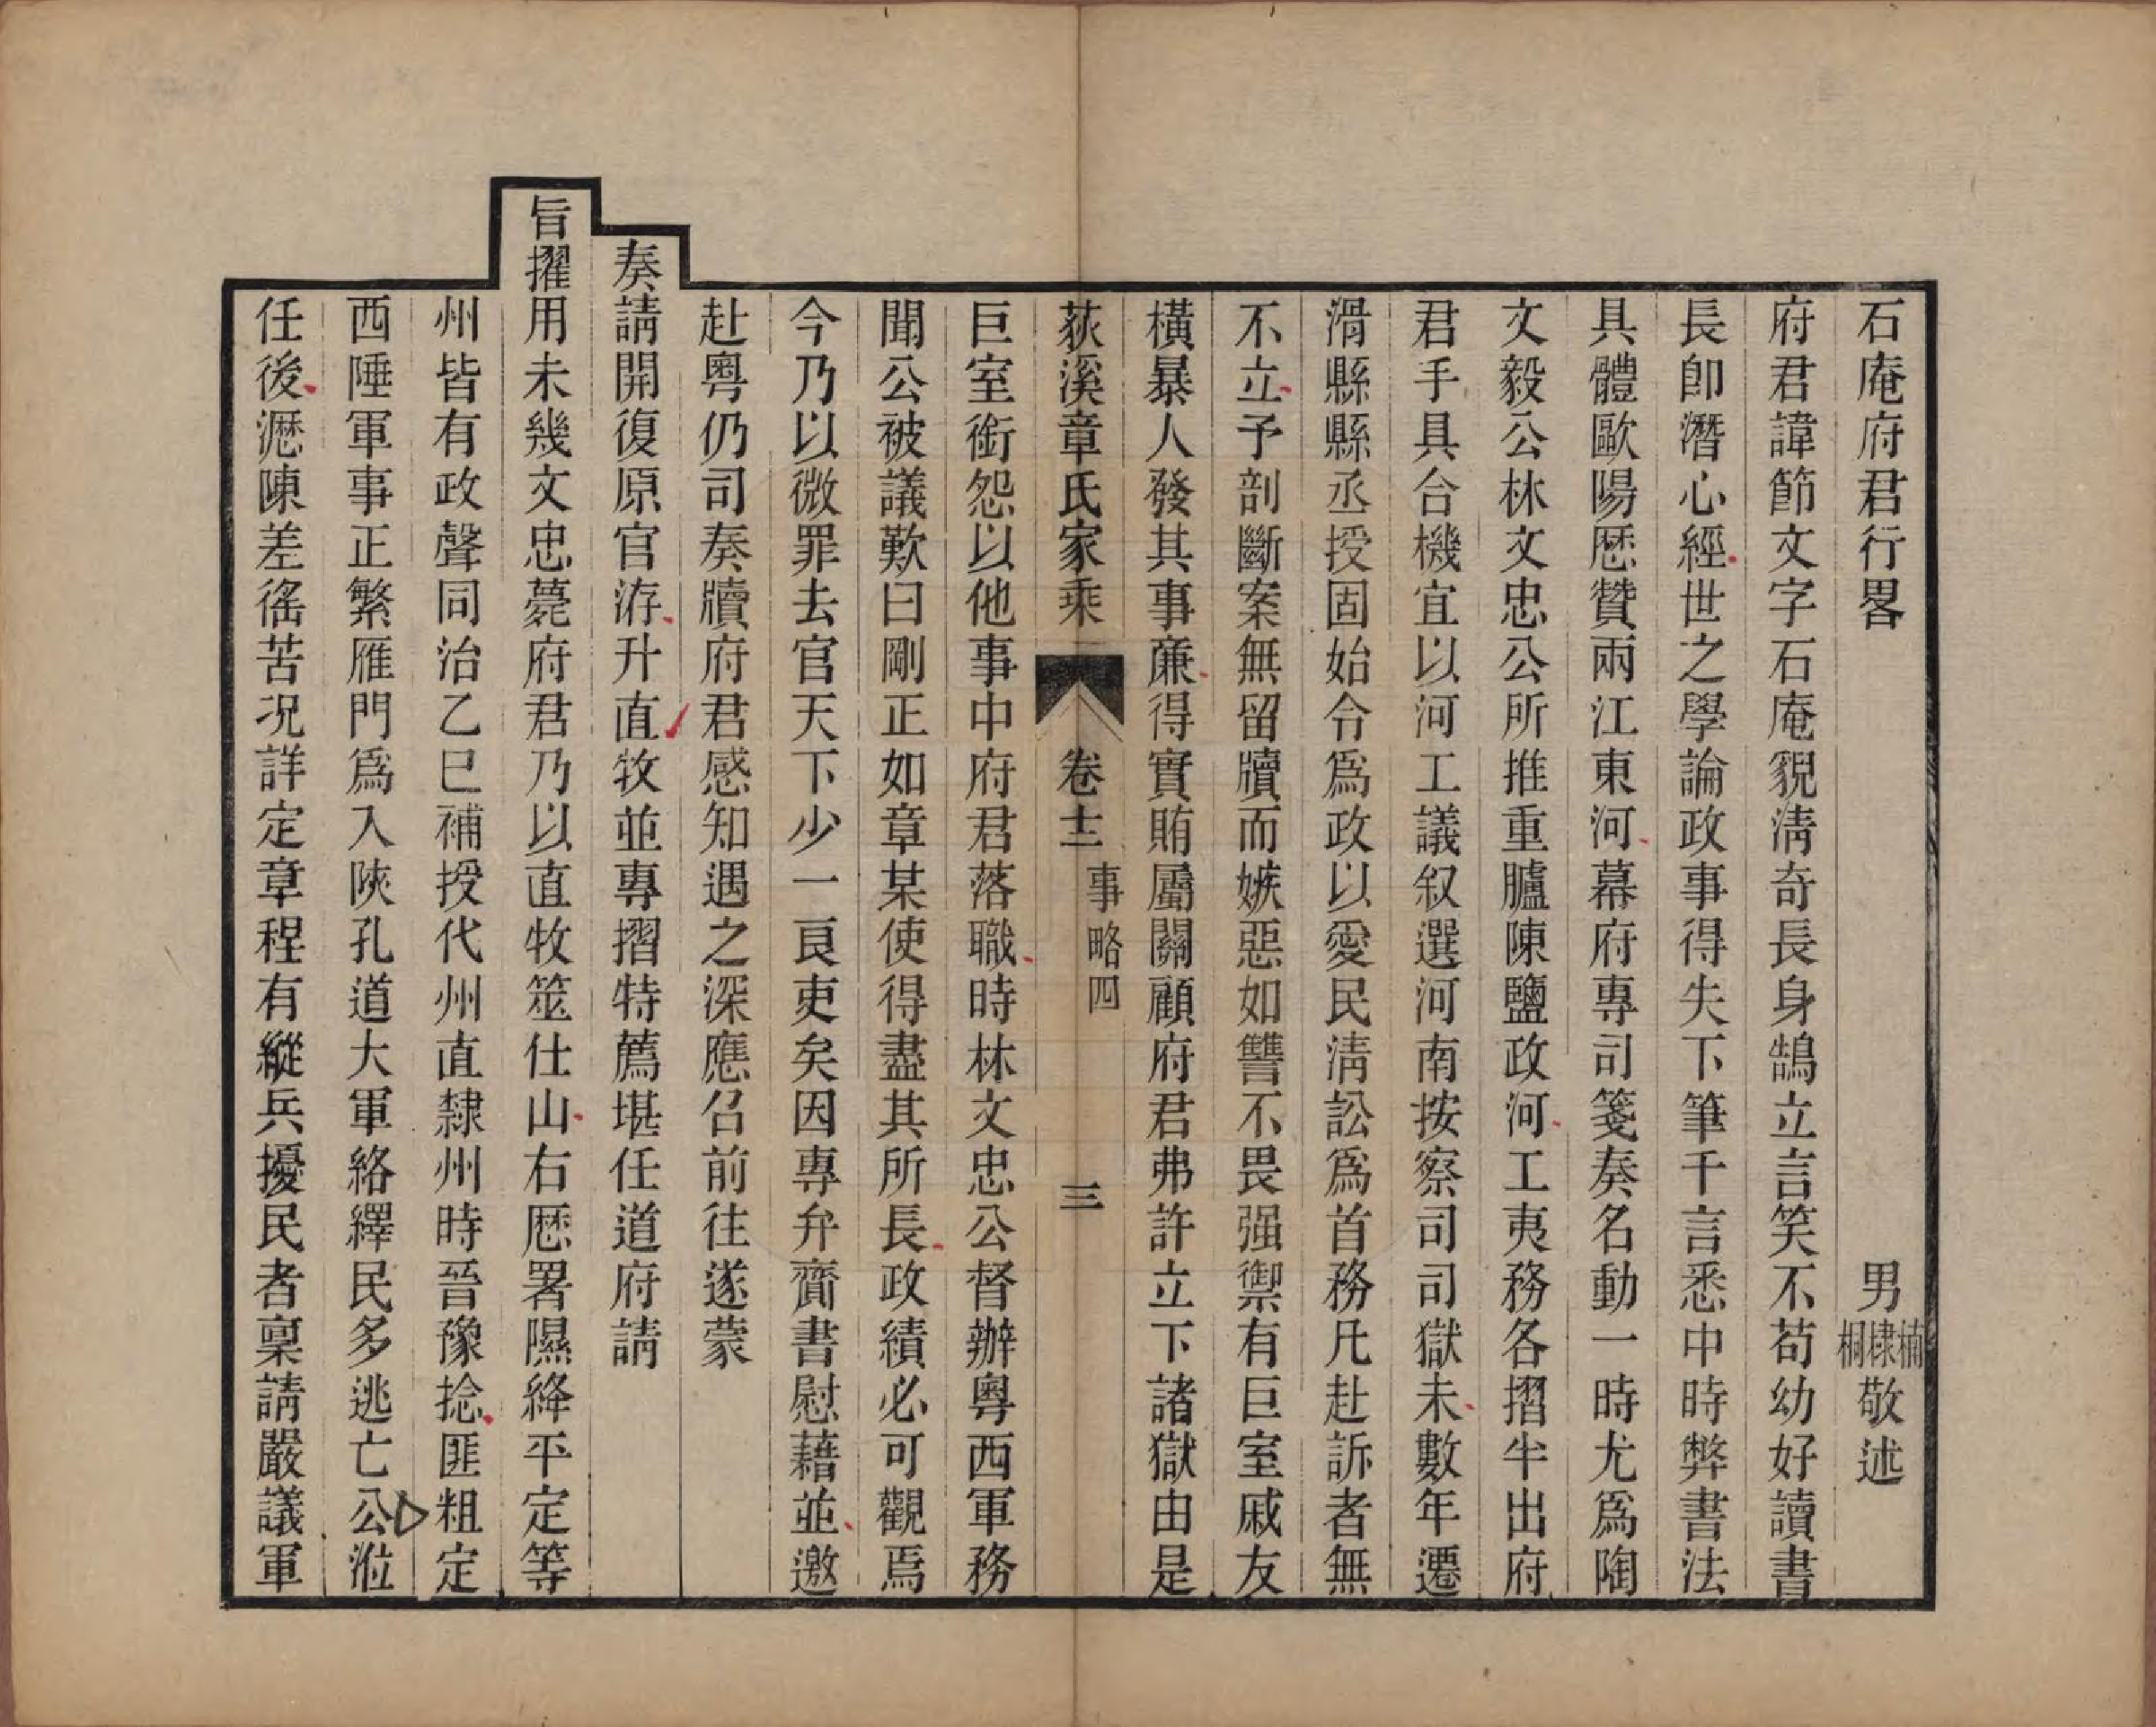 石庵府君行畧　男楠棣桐敬述
府君諱節文字石庵貎淸奇長身鵠立言笑不苟幼好讀書
長卽潛心經世之學論政事得失下筆千言悉中時弊書法
具體歐陽歴贊兩江東河幕府專司箋奏名動一時尤爲陶
文毅公林文忠公所推重臚陳鹽政河工夷務各摺半出府
君手具合機宜以河工議叙選河南按察司司獄未數年遷
滑縣縣丞授固始令爲政以愛民淸訟爲首務凡赴訴者無
不立予剖斷案無留牘而嫉惡如讐不畏强禦有巨室戚友
橫暴人發其事亷得實賄屬關顧府君弗許立下諸獄由是
荻溪章氏家乘　卷十二　事略四　三
巨室銜怨以他事中府君落職時林文忠公督辦粵西軍務
聞公被議歎曰剛正如章某使得盡其所長政績必可觀焉
今乃以微罪去官天下少一良吏矣因專弁齎書慰藉並邀
赴粵仍司奏牘府君感知遇之深應召前往遂蒙
奏請開復原官洊升直牧並專摺特薦堪任道府請
旨擢用未幾文忠薨府君乃以直牧筮仕山右歴署隰絳平定等
州皆有政聲同治乙巳補授代州直隸州時晉豫捻匪粗定
西陲軍事正繁雁門爲入陝孔道大軍絡繹民多逃亡公涖
任後瀝陳差徭苦况詳定章程有縱兵擾民者稟請嚴議軍